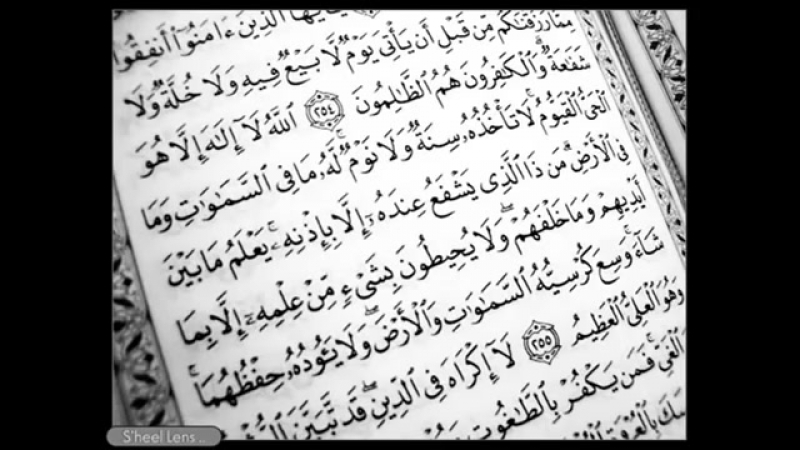 يَٰٓأَيُّهَا ٱلَّذِينَ ءَامَنُوٓا۟ أَنفِقُوا۟
مِمَّا رَزَقْنَٰكُم مِّن قَبْلِ أَن يَأْتِىَ يَوْمٌ لَّا بَيْعٌ فِيهِ وَلَا خُلَّةٌ وَلَا
شَفَٰعَةٌ ۗ وَٱلْكَٰفِرُونَ هُمُ ٱلظَّٰلِمُونَ ٢٥٤ ٱللَّهُ لَآ إِلَٰهَ إِلَّا هُوَ
ٱلْحَىُّ ٱلْقَيُّومُ ۚ لَا تَأْخُذُهُۥ سِنَةٌ وَلَا نَوْمٌ ۚ لَّهُۥ مَا فِى ٱلسَّمَٰوَٰتِ وَمَا
فِى ٱلْأَرْضِ ۗ مَن ذَا ٱلَّذِى يَشْفَعُ عِندَهُۥٓ إِلَّا بِإِذْنِهِۦ ۚ يَعْلَمُ مَا بَيْنَ
أَيْدِيهِمْ وَمَا خَلْفَهُمْ ۖ وَلَا يُحِيطُونَ بِشَىْءٍ مِّنْ عِلْمِهِۦٓ إِلَّا بِمَا
شَآءَ ۚ وَسِعَ كُرْسِيُّهُ ٱلسَّمَٰوَٰتِ وَٱلْأَرْضَ ۖ وَلَا يَـُٔودُهُۥ حِفْظُهُمَا ۚ
وَهُوَ ٱلْعَلِىُّ ٱلْعَظِيمُ ٢٥٥ لَآ إِكْرَاهَ فِى ٱلدِّينِ ۖ قَد تَّبَيَّنَ
ٱلْغَىِّ ۚ فَمَن يَكْفُرْ بِٱلطَّٰغُوتِ
S'heel Lens ..